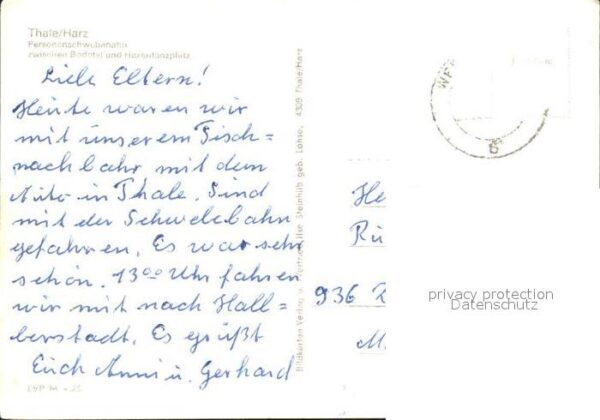 Thale/Harz
Personenschwebebahn
zwischen Bodetal und Hexentanzplatz
Liebe Eltern!
Heute waren wir
mit unserem Tisch=
nachbahr mit dem
Auto in Thale. Sind
mit der Schwebebahn
gefahren. Es war sehr
schön. 13⁰⁰ Uhr fahren
wir mit nach Hall=
berstadt. Es grüßt
Euch Anni u. Gerhard
Bildkarten Verlag u. Vertrieb Ilse Steinhilb geb. Lohse, 4308 Thale/Harz
He
Rü
936 Z
M
privacy protection
Datenschutz